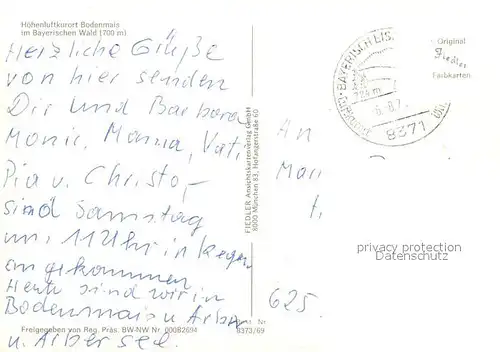 Höhenluftkurort Bodenmais
im Bayerischen Wald (700 m)
Herzliche Grüße
von hier senden
Dir und Barbara
Monic, Mama, Vati
Pia u. Christo,-
sind Samstag
um 11 Uhr in Regen
angekommen
Heute sind wir in
Bodenmais u Arber
u. Arbersee.
Freigegeben von Reg. Präs. BW-NW Nr. 00082694
9373/69
FIEDLER Ansichtskartenverlag GmbH
8000 München 83, Hofangerstraße 60
BAYERISCH EIS
724 m
8371
Original
Fiedler
Farbkarten
An
Mari
625
privacy protection
Datenschutz